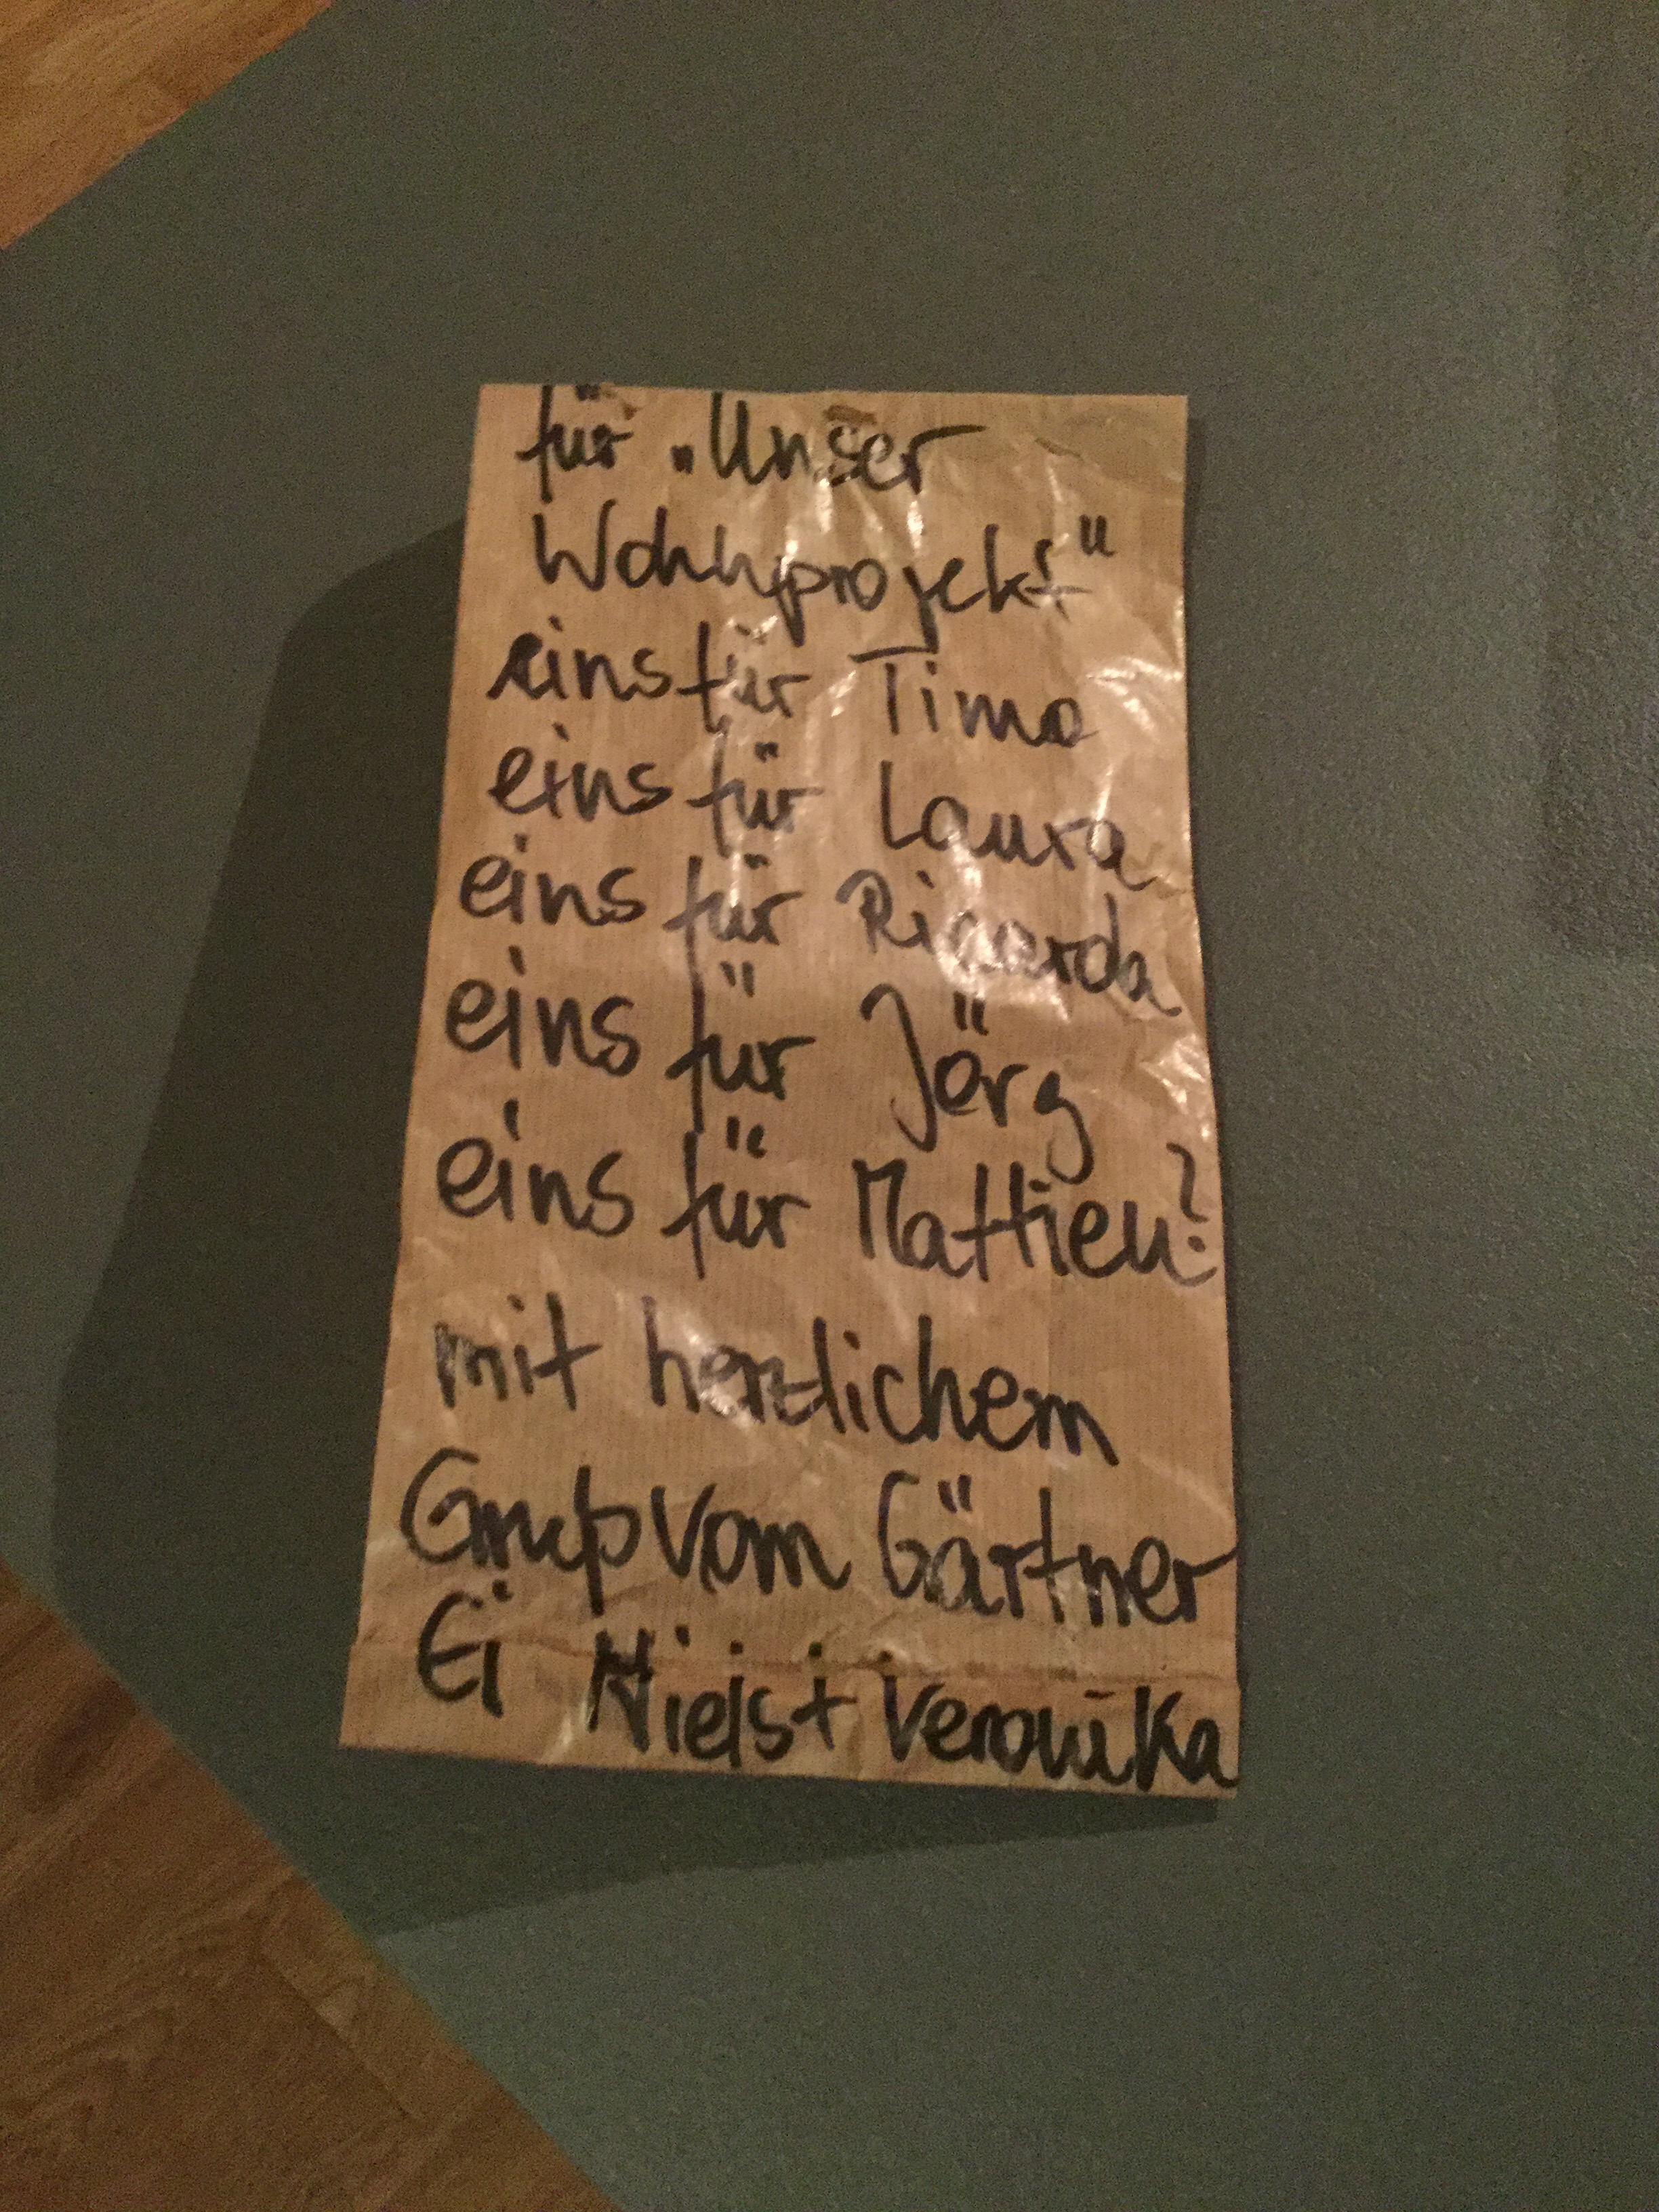 für „Unser
Wohnprojekt"
eins für Timo
eins für Laura
eins für Ricarda
eins für Jörg
eins für Mattieu?
mit herzlichem
Gruß vom Gärtner
Ei Niels + Veronika